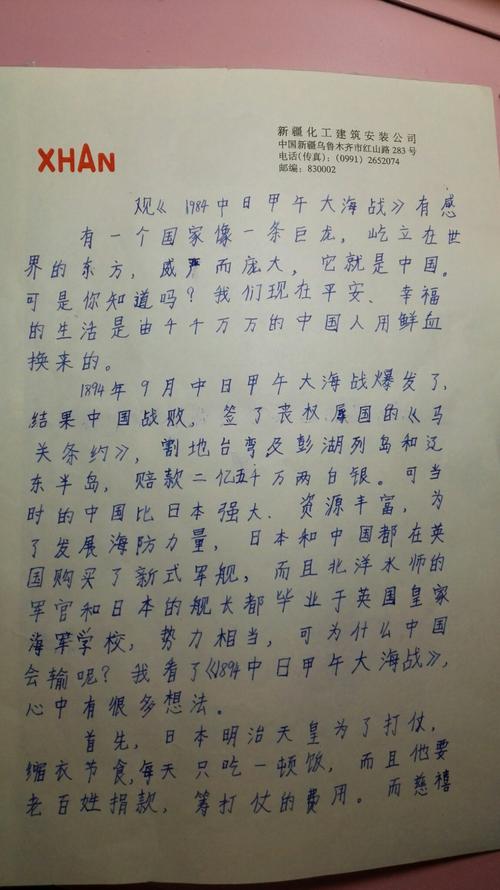 XHAN
新疆化工建筑安装公司
中国新疆乌鲁木齐市红山路 283 号
电话(传真):(0991) 2652074
邮编:830002
观《1984中日甲午大海战》有感
有一个国家像一条巨龙,屹立在世
界的东方,威严而庞大,它就是中国。
可是你知道吗?我们现在平安、幸福
的生活是由千千万万的中国人用鲜血
换来的。
1894年9月中日甲午大海战爆发了,
结果中国战败,签了丧权辱国的《马
关条约》,割地台弯及彭湖列岛和辽
东半岛,赔款二亿五千万两白银。可当
时的中国比日本强大、资源丰富,为
了发展海防力量,日本和中国都在英
国购买了新式军舰,而且北洋水师的
军官和日本的舰长都毕业于英国皇家
海军学校,势力相当,可为什么中国
会输呢?我看了《1894中日甲午大海战》,
心中有很多想法。
首先,日本明治天皇为了打仗,
缩衣节食,每天只吃一顿饭,而且他要
老百姓捐款,筹打仗的费用。而慈禧